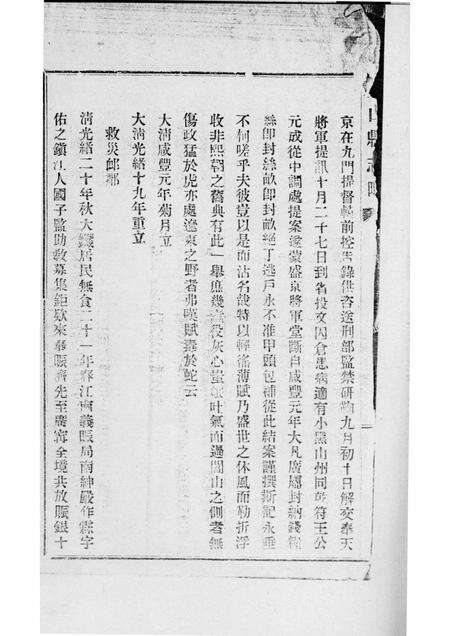 山縣志略
京在九門提督轅前控告錄供咨送刑部監禁研訊九月初十日解交奉天
將軍提訊十月二十七日到省投文因倉患病適有小黑山州同彭符王公
元成從中調處提案遂蒙盛京將軍堂斷自咸豐元年大凡廣寧封納錢糧
絲卽封絲畝卽封畝絕丁逃戶永不准甲頭包補從此結案謹撰斯記永垂
不朽嗟乎夫彼豈以是而沽名哉特以輕徭薄賦乃盛世之休風而勒折浮
收非熙朝之舊典有此一舉庶幾 役灰心 吐氣而過閭山之側者無
傷政猛於虎亦處遼東之野者弗嘆賦毒於蛇云
大清咸豐元年菊月立
大淸光緒十九年重立
救災卹鄰
清光緒二十年秋大饑居民無食二十一年春江南義賑局南紳嚴作霖字
佑之鎮江人國子監助敎募集鉅欵來奉賑濟先至廣寧全境共放賑銀十